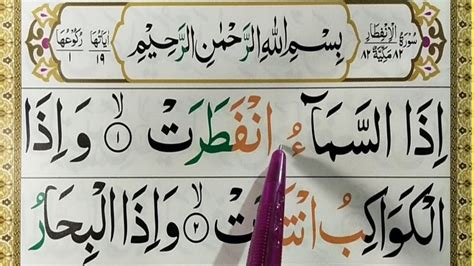 سُوْرَةُ الْاِنْفِطَارِ
٨٢ مَكِّيَّةٌ ٨٢
بِسْمِ اللهِ الرَّحْمٰنِ الرَّحِيْمِ
اٰيَاتُهَا ١٩
رُكُوْعُهَا ١
اِذَا السَّمَآءُ انْفَطَرَتْ ۙ﴿١﴾ وَاِذَا
الْكَوَاكِبُ انْتَثَرَتْ ۙ﴿٢﴾ وَاِذَا الْبِحَارُ